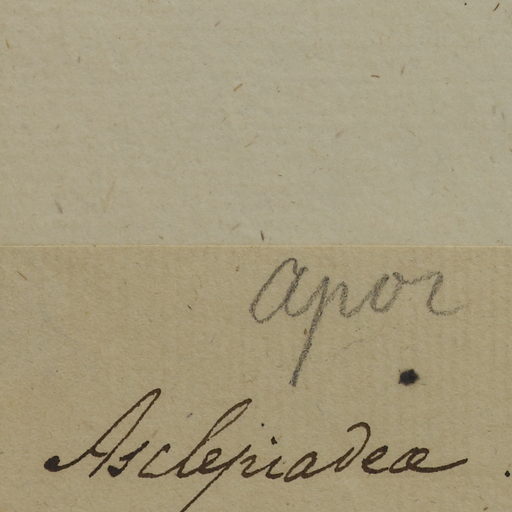 apor
Asclepiadeæ.